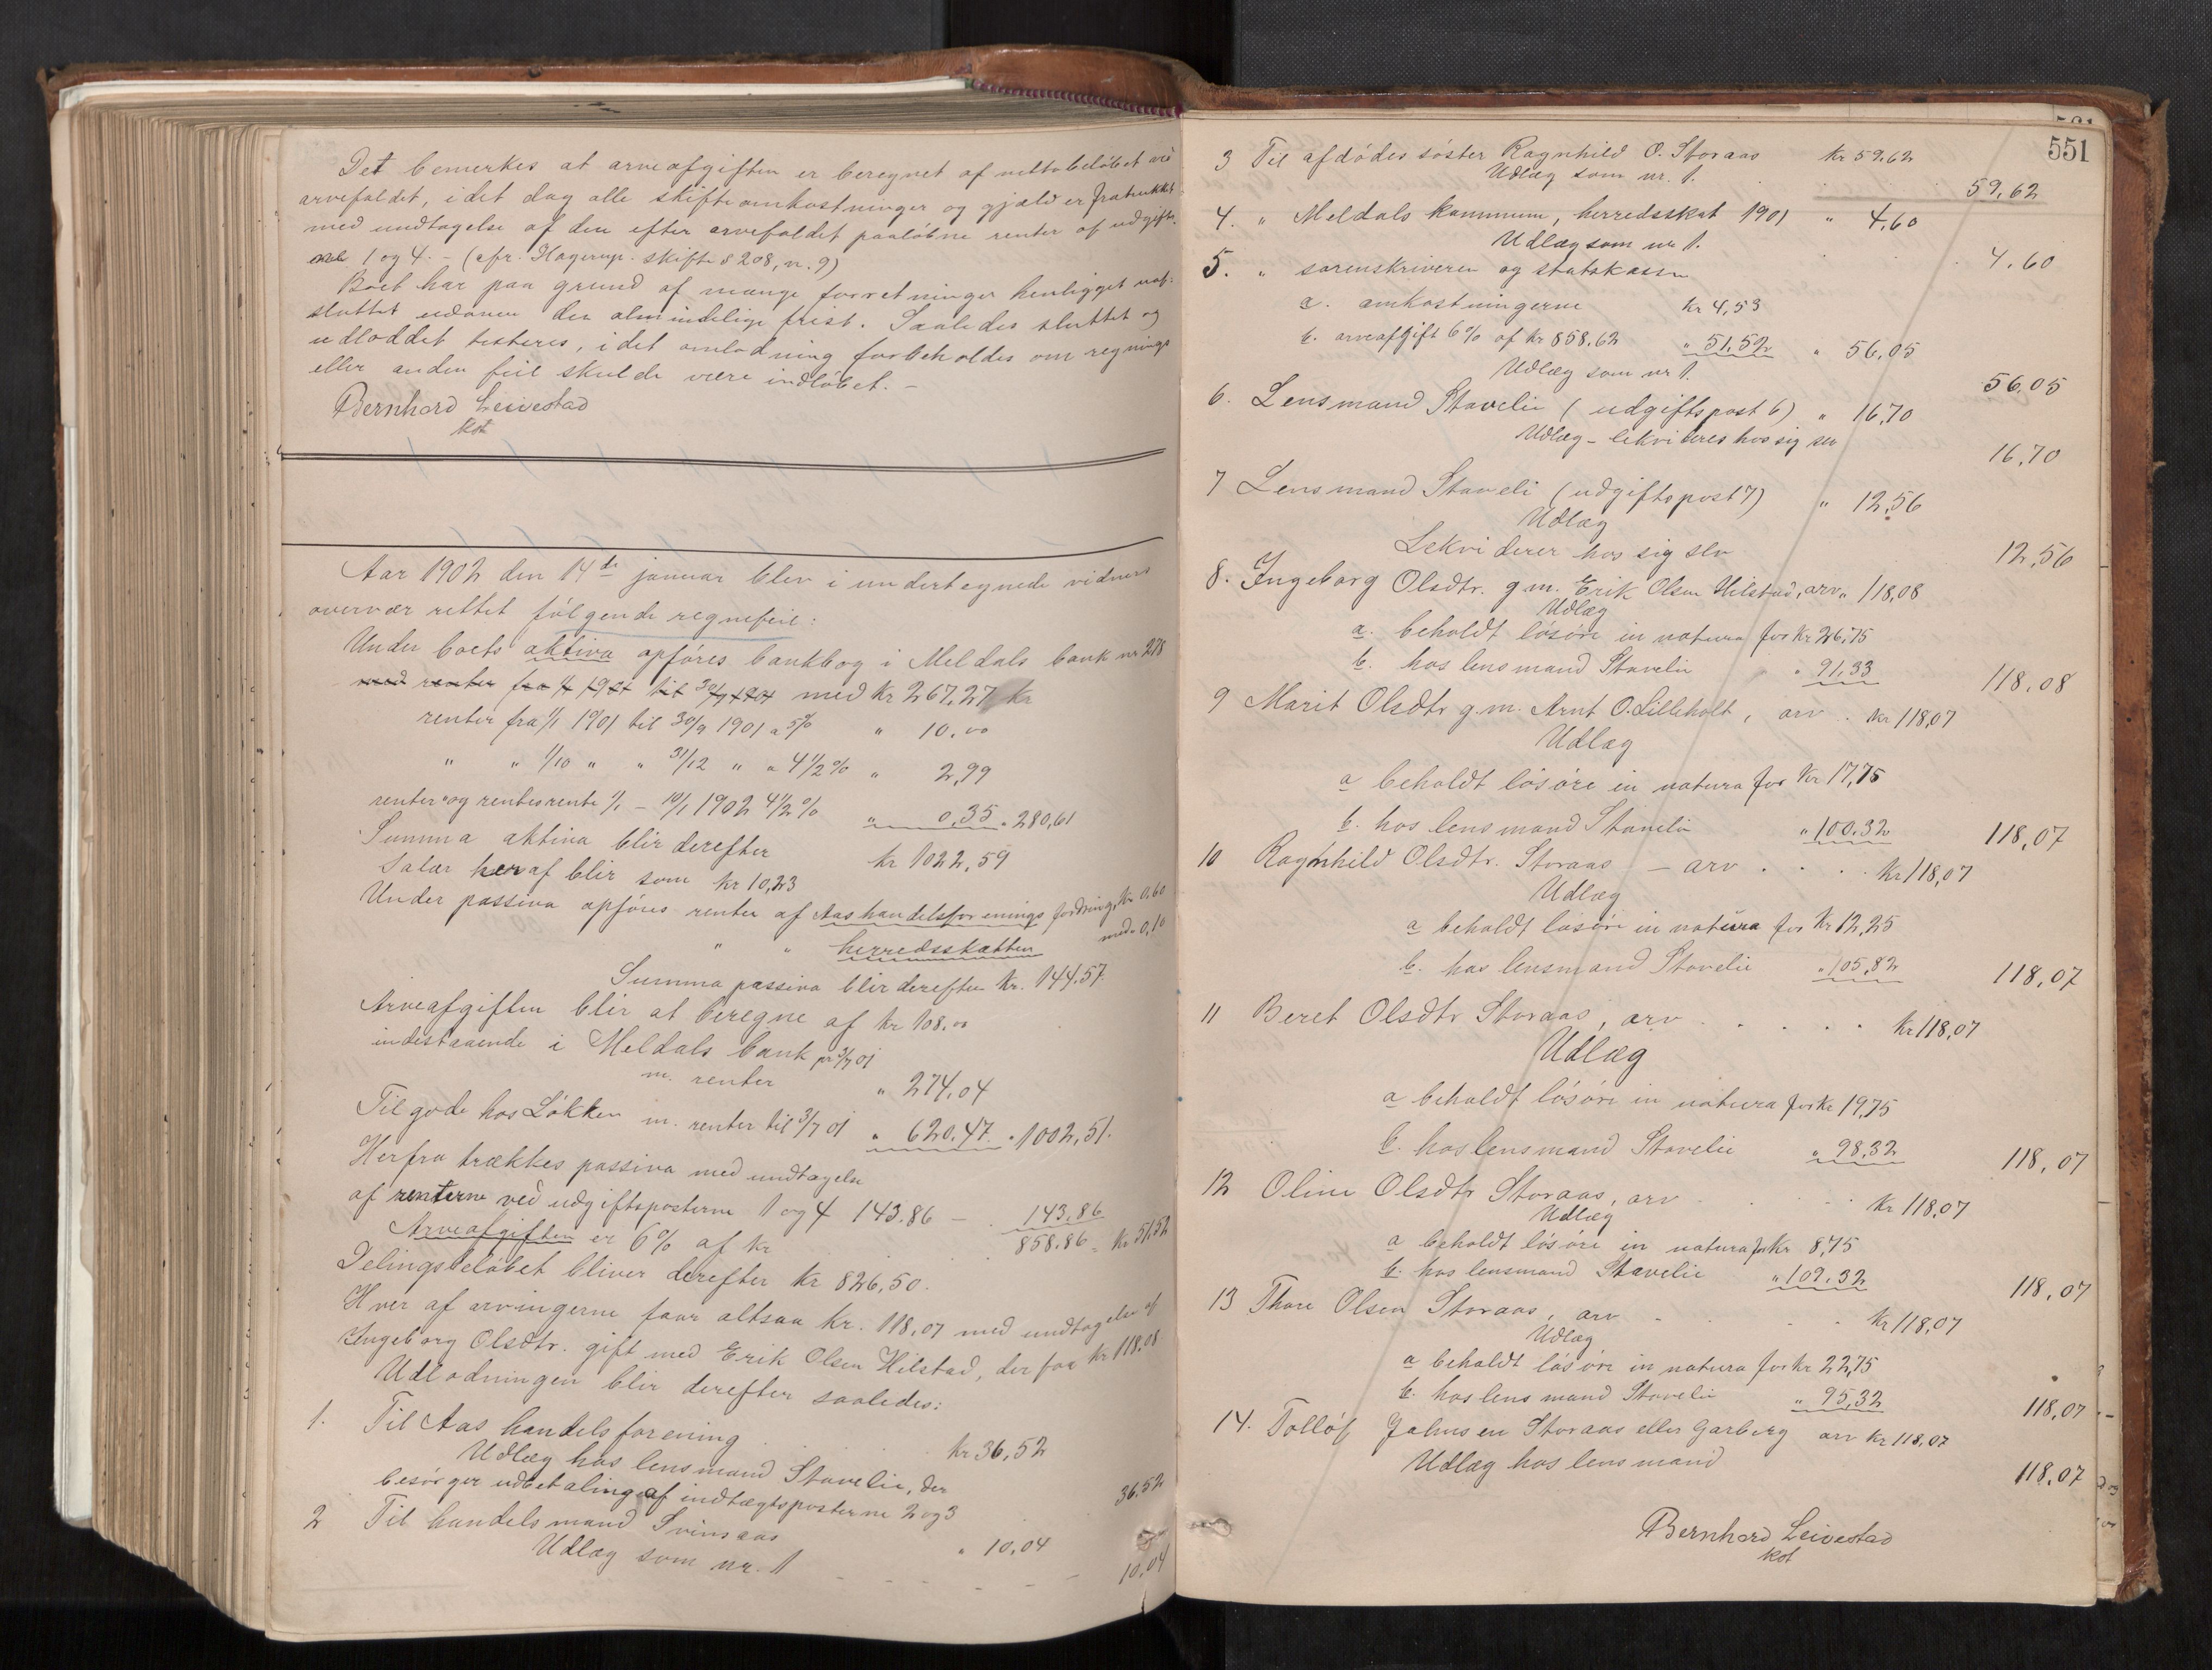 Det bemerkes at arveafgiften er beregnet af nettobeløbet ved
arvefaldet, idet dog alle skifteomkostninger og gjæld er fratrukket
med undtagelse af den efter arvefaldet paaløbne renter af udgifts-
1 og 4. – (cfr. Hagerup. skifte § 208, n. 9)
Boet har paa grund af mange forretninger henligget uaf-
sluttet udover den almindelige frist. Saaledes sluttet og
udloddet testeres, idet omlodning forbeholdes om regnings
eller anden feil skulde være indløbet. –
Bernhard Leivestad
kst
Aar 1902 den 14de januar blev i undertegnede vidners
overvær rettet følgende regnefeil:
Under boets aktiva opføres bankbog i Meldals bank nr 278
med renter fra 1/1 1901 til 30/9 1901 med kr 267,27 kr
renter fra 1/1 1901 til 30/9 1901 a 5% " 10.00
" " 1/10 " " 31/12 " a 4 1/2 % " 2,99
renter og rentesrente 1/1 – 10/1 1902 4 1/2 % " 0,35 " 280,61
Summa aktiva blir derefter kr 1022,59
Salær heraf blir som kr 10,23
Under passiva opføres renter af Aas handelsforenings fordring kr 0,60
" " herredsskatten med " 0,10
Summa passiva blir derefter kr. 144.57.
Arveafgiften blir at beregne af kr 108.00
indestaaende i Meldals bank pr 3/7 01
m. renter " 274,04
Tilgode hos Løkken m. renter til 3/7 01 " 620.47 " 1002,51.
Herfra trækkes passiva med undtagelse
af renterne ved udgiftsposterne 1 og 4 143.86 – . 143.86
Arveafgiften er 6% af kr 858.86 = kr 51,52
Delingsbeløbet bliver derefter kr 826,50.
Hver af arvingerne faar altsaa kr. 118,07 med undtagelse af
Ingeborg Olsdtr. gift med Erik Olsen Hilstad, der faa kr 118.08
Udlodningen blir derefter saaledes:
1. Til Aas handelsforening . kr 36,52
Udlæg hos lensmand Stavelie, der
besørger udbetaling af indtægtsposterne 2 og 3 36.52
2 Til handelsmand Svinsaas " 10,04
Udlæg som nr. 1 – – – – – – 10,04
551
3 Til afdødes søster Ragnhild O. Storaas kr 59.62
Udlæg som nr. 1. 59,62
4. " Meldals kommune, herredsskat 1901 " 4,60
Udlæg som nr 1. 4.60
5. " sorenskriveren og statskassen
a. omkostningerne kr 4,53
b. arveafgift 6% af kr 858.62 " 51,52 " 56,05
Udlæg som nr 1. 56,05
6. Lensmand Stavelie (udgiftspost 6) " 16,70
Udlæg – lekvideres hos sig selv 16,70
7 Lensmand Staveli (udgiftspost 7) " 12,56
Udlæg
Lekviderer hos sig selv 12,56
8. Ingeborg Olsdtr. g.m. Erik Olsen Hilstad, arv " 118,08
Udlæg
a. beholdt løsøre in natura for kr 26,75
b. hos lensmand Stavelie " 91,33 118,08
9 Marit Olsdtr g.m. Arnt O. Lilleholt, arv . kr 118,07
Udlæg
a beholdt løsøre in natura for kr 17,75
b. hos lensmand Stavelie " 100.32 118,07
10 Ragnhild Olsdtr. Storaas – arv . . . . kr 118,07
Udlæg
a beholdt løsøre in natura for kr 12,25
b. hos lensmand Stavelie " 105,82 118,07
11 Beret Olsdtr Storaas, arv . . . . . kr 118,07
Udlæg
a beholdt løsøre in natura for kr 19,75
b. hos lensmand Stavelie " 98,32 118,07
12 Oline Olsdtr Storaas, arv . . . . kr 118,07
Udlæg
a beholdt løsøre in natura for kr 8,75
b. hos lensmand Stavelie " 109.32 118,07
13 Thore Olsen Storaas, arv . . . . kr 118,07
Udlæg
a beholdt løsøre in natura for kr 22,75
b. hos lensmand Stavelie " 95,32 118,07
14. Tolløf Johnsen Storaas eller Garberg arv kr 118,07
Udlæg hos lensmand 118,07
Bernhard Leivestad
kst